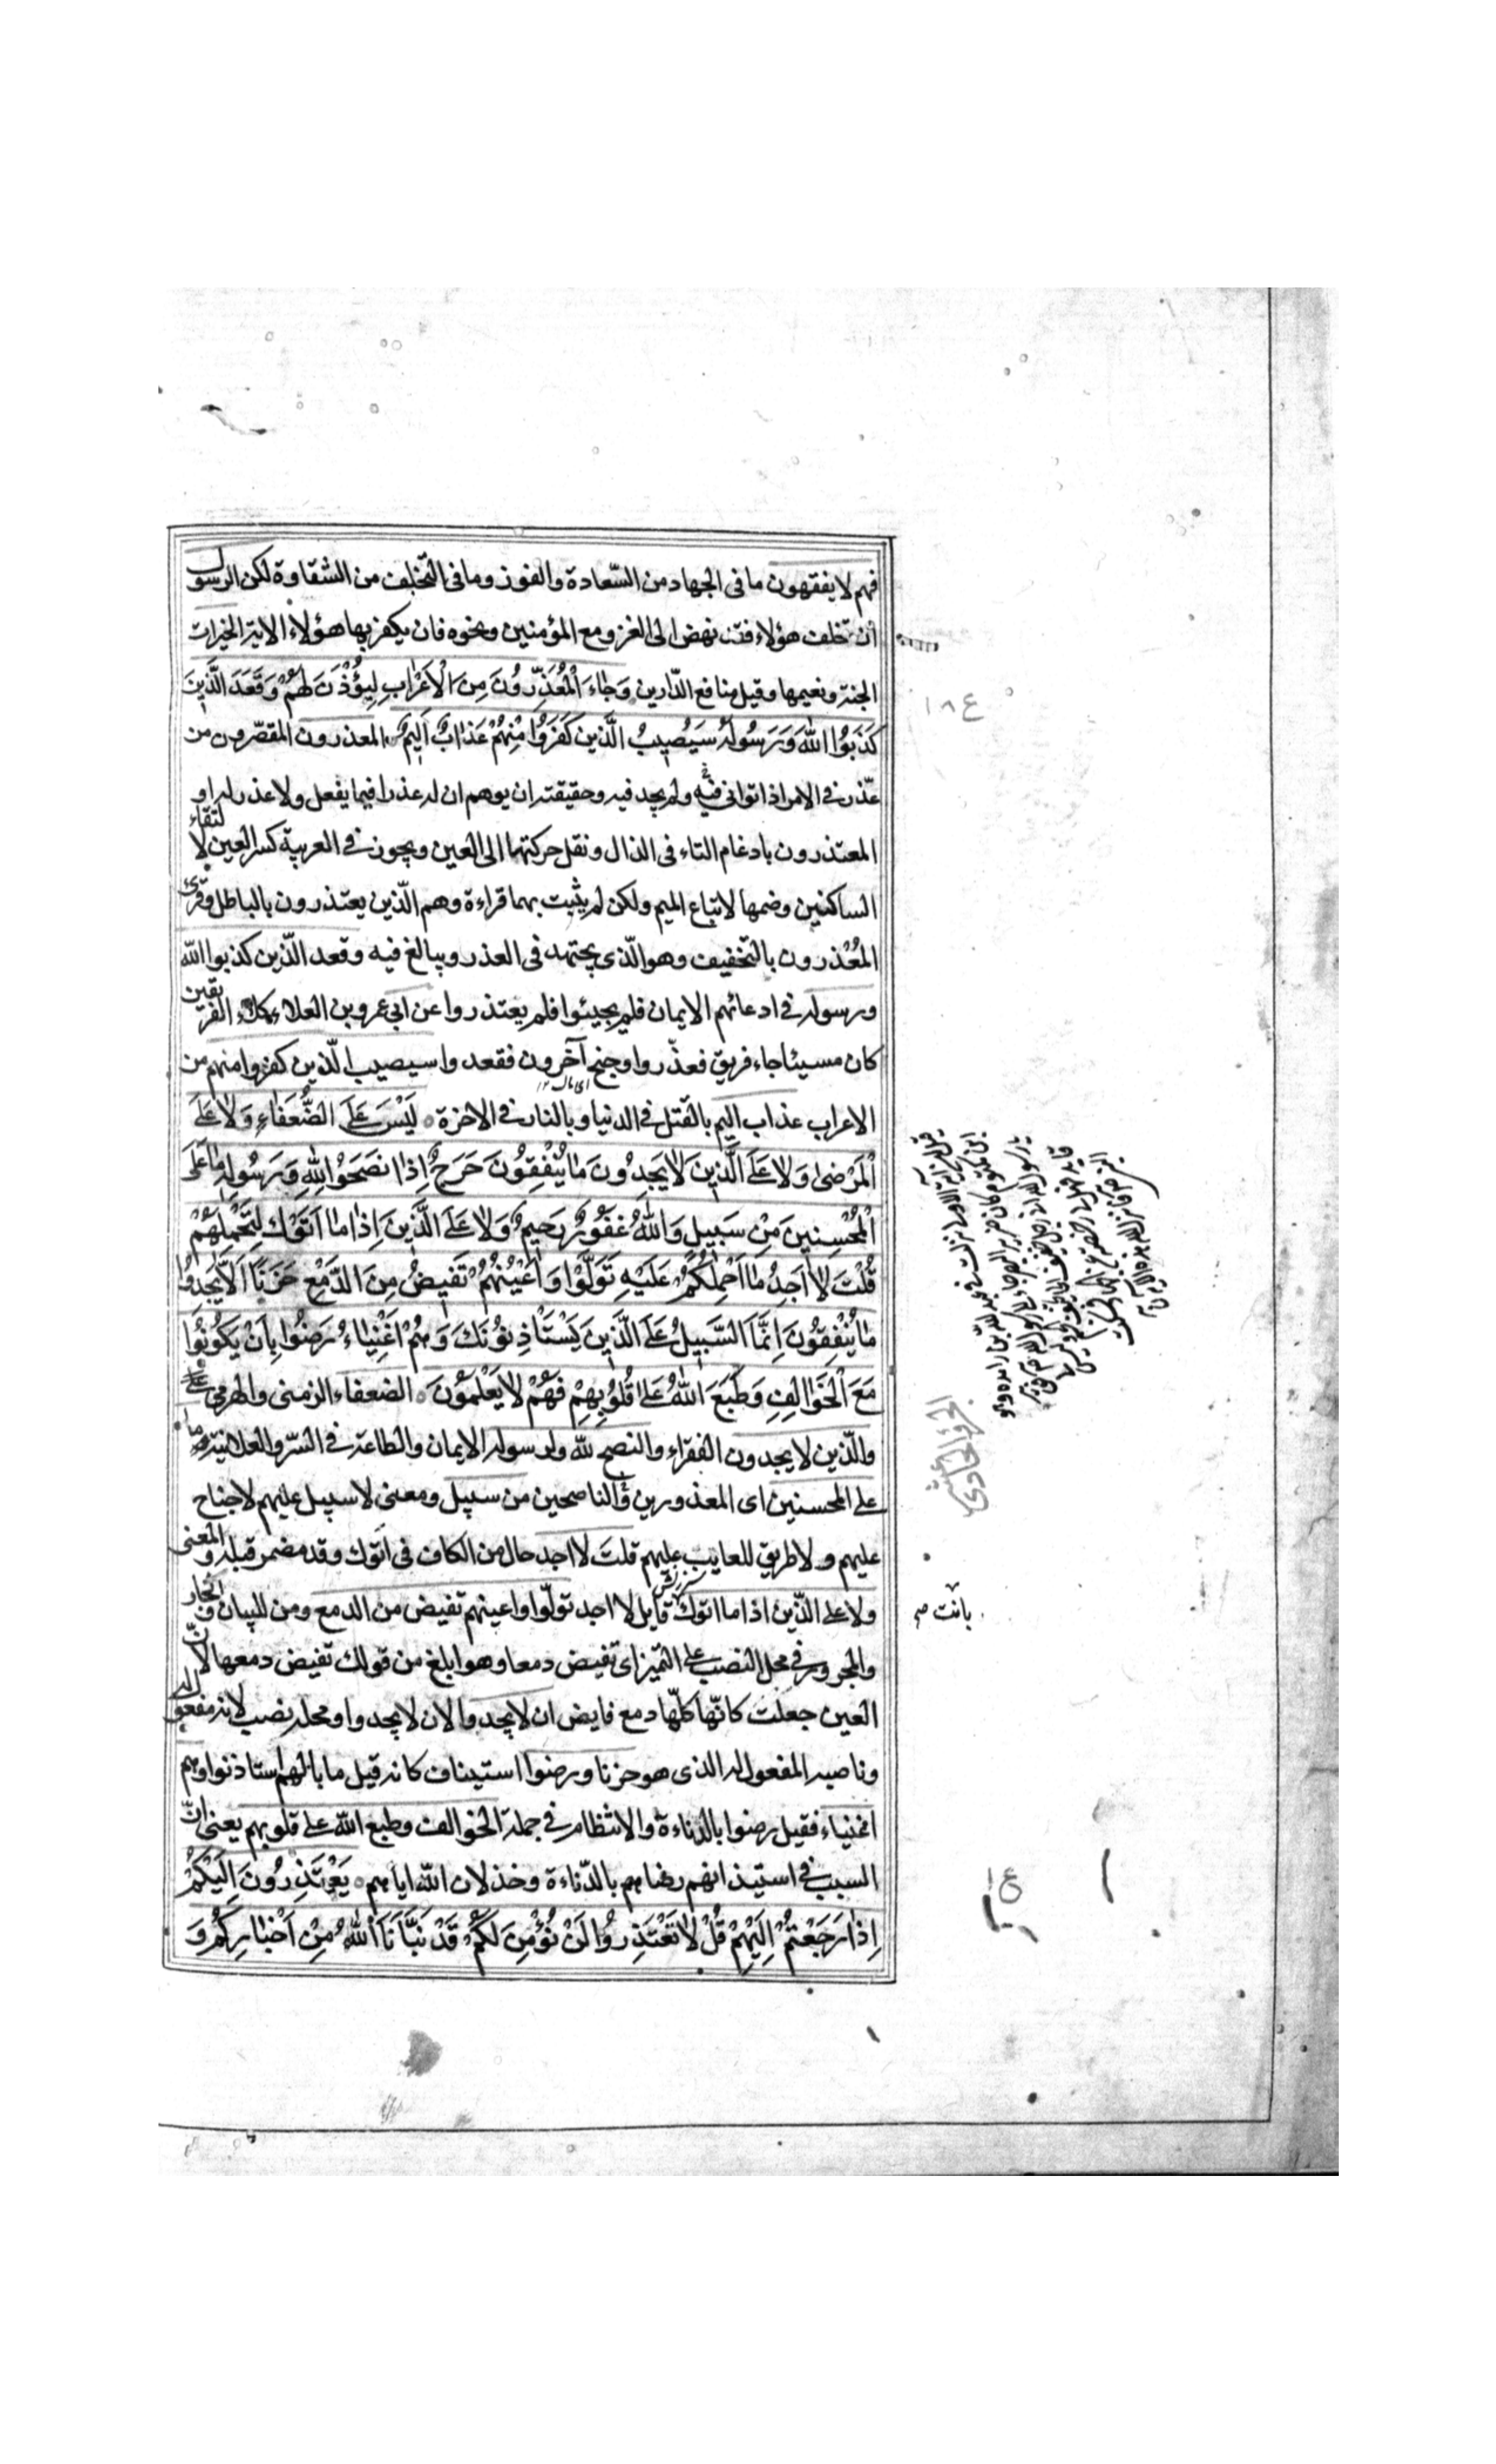 فهم لا يفقهون ما فى الجهاد من السّعادة والفوز وما فى التخلف من الشقاوة لكن الرسول
ان تخلف هؤلاء فقد نهض الى الغزو مع المؤمنين ونحوه فان يكفر بها هؤلاء الاية الخيرات
الجنة ونعيمها وقيل منافع الدّارين وَجَاءَ الْمُعَذِّرُونَ مِنَ الْاَعْرَابِ لِيُؤْذَنَ لَهُمْ وَقَعَدَ الَّذِينَ
كَذَبُوا اللّٰهَ وَرَسُولَهُ سَيُصِيبُ الَّذِينَ كَفَرُوا مِنْهُمْ عَذَابٌ اَلِيمٌ المعذرون المقصّرون من
عذّر فى الامر اذا توانى فيه ولم يجد فيه وحقيقته ان يوهم ان له عذرا فيما يفعل ولا عذر له او
المعتذرون بادغام التاء فى الذال ونقل حركتها الى العين ويجوز فى العربية كسر العين لالتقاء
الساكنين وضمها لاتباع الميم ولكن لم يثبت بهما قراءة وهم الّذين يعتذرون بالباطل وقرئ
المُعْذرون بالتخفيف وهو الّذى يجتهد فى العذر ويبالغ فيه وقعد الّذين كذبوا اللّٰه
ورسوله فى ادعائهم الايمان فلم يجيئوا فلم يعتذروا عن ابى عمرو بن العلاء كلا الفريقين
كان مسيئا جاء فريق فعذّروا وجنح آخرون فقعدوا سيصيب الّذين كفروا منهم من
الاعراب عذاب اليم بالقتل فى الدنيا وبالنار فى الاخرة لَيْسَ عَلَى الضُّعَفَاءِ وَلَا عَلَى
الْمَرْضٰى وَلَا عَلَى الَّذِينَ لَا يَجِدُونَ مَا يُنْفِقُونَ حَرَجٌ اِذَا نَصَحُوا لِلّٰهِ وَرَسُولِهِ مَا عَلَى
الْمُحْسِنِينَ مِنْ سَبِيلٍ وَاللّٰهُ غَفُورٌ رَحِيمٌ وَلَا عَلَى الَّذِينَ اِذَا مَا اَتَوْكَ لِتَحْمِلَهُمْ
قُلْتَ لَا اَجِدُ مَا اَحْمِلُكُمْ عَلَيْهِ تَوَلَّوْا وَاَعْيُنُهُمْ تَفِيضُ مِنَ الدَّمْعِ حَزَنًا اَلَّا يَجِدُوا
مَا يُنْفِقُونَ اِنَّمَا السَّبِيلُ عَلَى الَّذِينَ يَسْتَأْذِنُونَكَ وَهُمْ اَغْنِيَاءُ رَضُوا بِاَنْ يَكُونُوا
مَعَ الْخَوَالِفِ وَطَبَعَ اللّٰهُ عَلٰى قُلُوبِهِمْ فَهُمْ لَا يَعْلَمُونَ الضعفاء الزمنى والهرمى
والّذين لا يجدون الفقراء والنصح للّٰه ولرسوله الايمان والطاعة فى السّر والعلانية ما
على المحسنين اى المعذورين والناصحين من سبيل ومعنى لا سبيل عليهم لا جناح
عليهم ولا طريق للعايب عليهم قلت لا اجد حال من الكاف فى اتوك وقد مضمر قبله والمعنى
ولا على الّذين اذا ما اتوك قايلا لا اجد تولّوا واعينهم تفيض من الدمع ومن للبيان والجار
والمجرور فى محل النصب على التميز اى تفيض دمعا وهو ابلغ من قولك تفيض دمعها لانّ
العين جعلت كانّها كلّها دمع فايض ان لا يجدوا لان لا يجدوا ومحله نصب لانه مفعول له
وناصبه المفعول له الذى هو حزنا ورضوا استيناف كانه قيل ما بالهم استاذنوا وهم
اغنياء فقيل رضوا بالدناءة والانتظام فى جملة الخوالف وطبع اللّٰه على قلوبهم يعنى انّ
السبب فى استيذانهم رضاهم بالدّناءة وخذلان اللّٰه اياهم يَعْتَذِرُونَ اِلَيْكُمْ
اِذَا رَجَعْتُمْ اِلَيْهِمْ قُلْ لَا تَعْتَذِرُوا لَنْ نُؤْمِنَ لَكُمْ قَدْ نَبَّأَنَا اللّٰهُ مِنْ اَخْبَارِكُمْ وَ
ع ١٨
الجزؤ الحادى عشر
ع ١